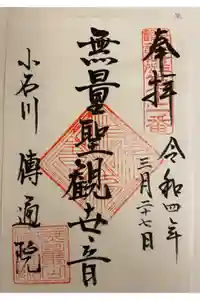 奉拝
令和四年
三月二十七日
無量聖觀世音
小石川
傳通院